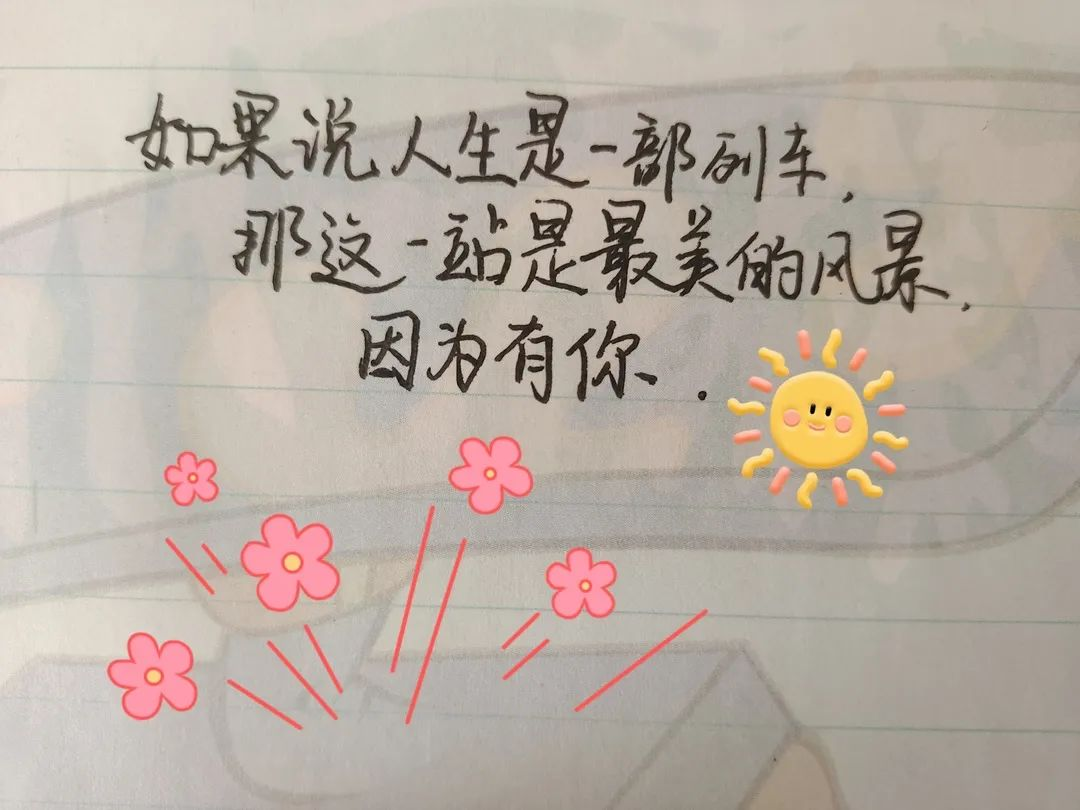 如果说人生是一部列车,
那这一站是最美的风景,
因为有你.